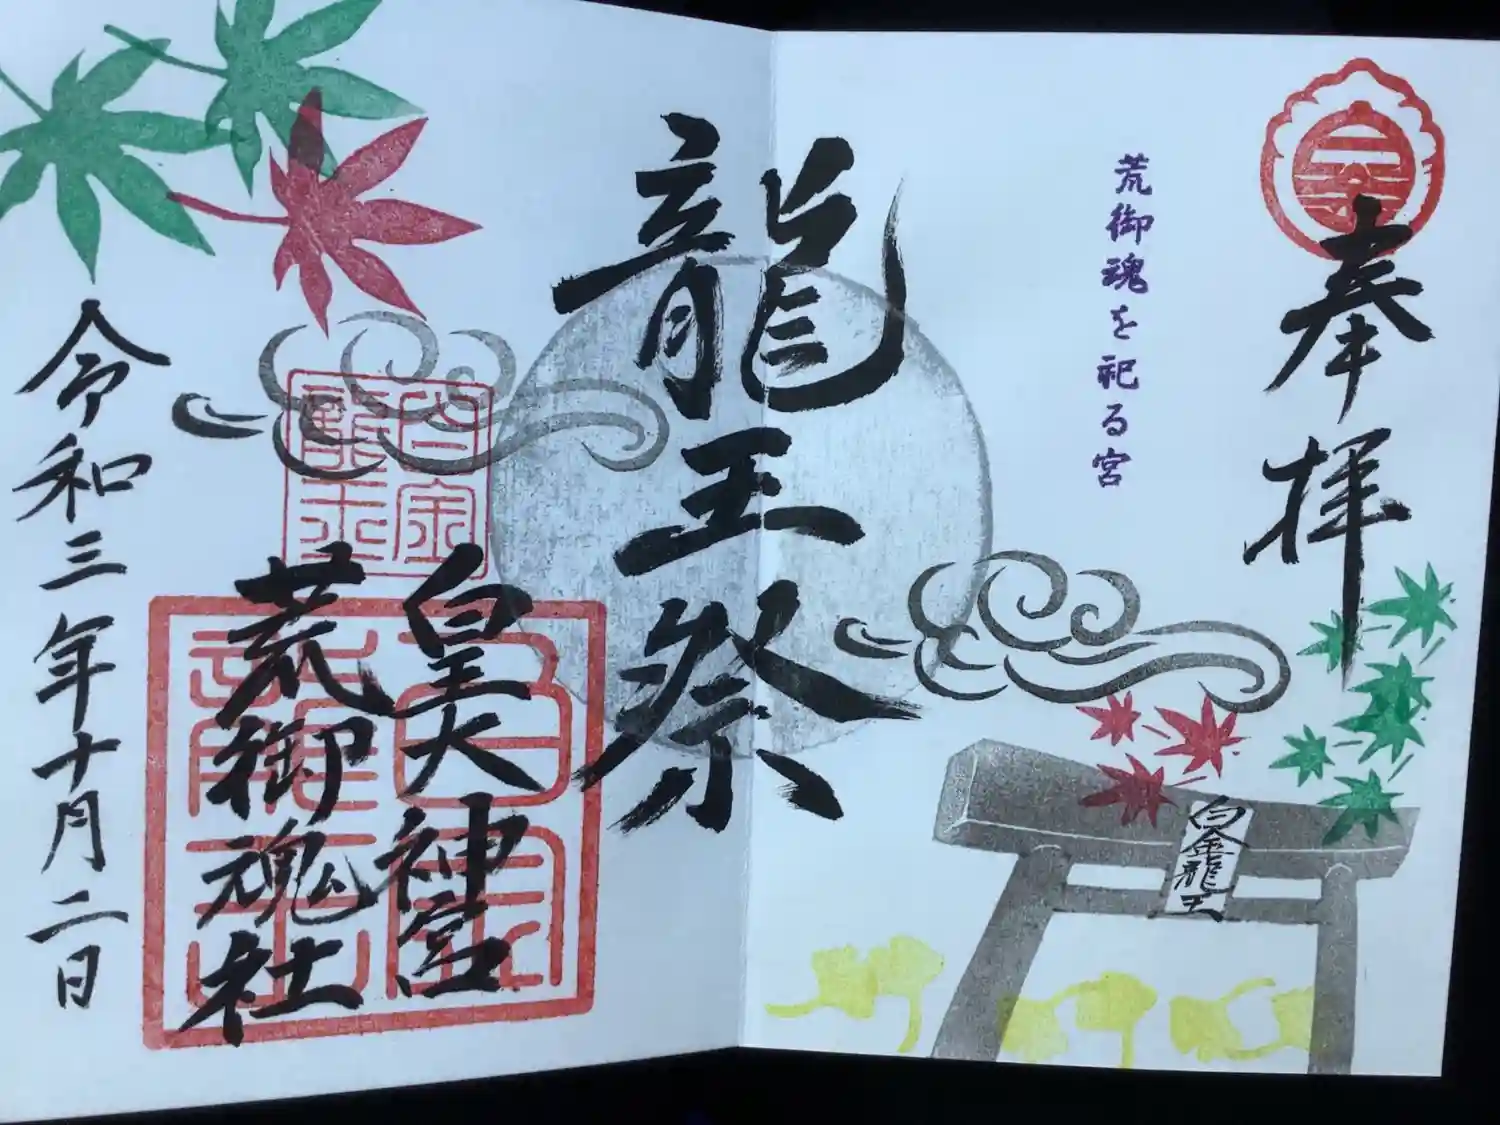 奉拝
荒御魂を祀る宮
白金龍王
龍王祭
白金
龍王
皇大神宮
荒御魂社
令和三年十月二日